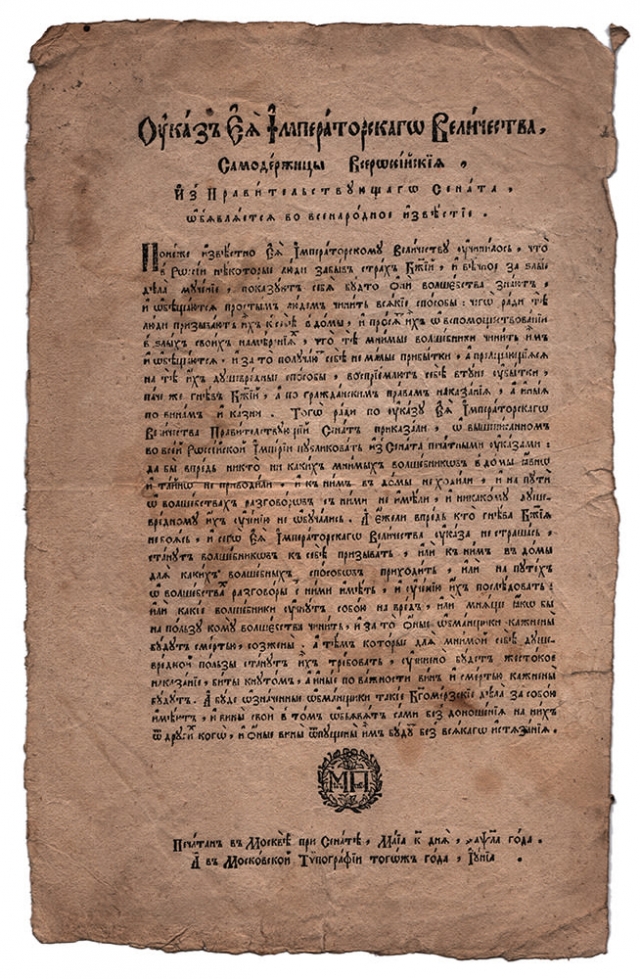 Оу҆ка́зъ Є҆ѧ̀ І҆мпера́торскагѡ Вели́чества,
Самоде́ржицы Всерѡссі́йскїѧ,
И҆з̾ Прави́тельствꙋющагѡ Сена́та,
ѡ҆б̾ѧвлѧетсѧ во всенаро́дное и҆звѣ́стїе.
Поне́же и҆звѣ́стно Є҆ѧ̀ І҆мпера́торскомꙋ Вели́чествꙋ ᲂу҆чини́лось, что̀
в̾ Рѡссі́и нѣ́которые лю́ди забы́въ стра́хъ Бж҃їй, и҆ вѣ́чное за ѕлы́ѧ
дѣла̀ мꙋче́нїе, пока́зꙋютъ себѧ̀ бꙋ́дто ѻ҆нѝ волшєбства̀ зна́ютъ,
и҆ ѡ҆бѣща́ютсѧ просты́мъ лю́демъ чини́ть всѧ́кїе спо́собы: чегѡ̀ ра́ди тѣ̀
лю́ди призыва́ютъ и҆́хъ к̾ себѣ̀ в̾ до́мы, и҆ про́сѧтъ и҆́хъ ѡ҆ вспомоществова́нїи
в̾ ѕлы́хъ свои́хъ намѣ́ренїѧхъ, что̀ тѣ̀ мни́мые волше́бники чини́ть и҆̀мъ
и҆ ѡ҆бѣща́ютсѧ, и҆ за то̀ полꙋча́ютъ себѣ̀ не ма́лые при́бытки, а҆ прельща́ющїесѧ
на тѣ̀ и҆́хъ дꙋшевре́дные спо́собы, воспрїе́млютъ себѣ̀ втꙋ́не ᲂу҆бы́тки,
па́че же гнѣ́въ Бж҃їй, а҆ по гражда́нскимъ права́мъ наказа́нїѧ, а҆ и҆ны́ѧ
по вина́мъ и҆ ка́зни. Тогѡ̀ ра́ди по ᲂу҆ка́зꙋ Є҆ѧ̀ І҆мпера́торскагѡ
Вели́чества Прави́тельствꙋющїй Сена́тъ приказа́ли, ѡ҆ вышепи́санномъ
во все́й Рѡссі́йской І҆мпе́рїи пꙋбликова́ть и҆з̾ Сена́та печа́тными ᲂу҆ка́зами:
да бы впре́дь никто̀ ни каки́хъ мни́мыхъ волше́бникѡвъ в̾ до́мы ꙗ҆́внѡ
и҆ та́йнѡ не приводи́ли, и҆ к̾ ни́мъ в̾ до́мы не ходи́ли, и҆ на пꙋти̑
ѡ҆ волшєбства́хъ разгово́рѡвъ с̾ ни́ми не и҆мѣ́ли, и҆ никако́мꙋ дꙋше-
вре́дномꙋ и҆́хъ ᲂу҆че́нїю не ѡ҆бꙋча́лись. А҆ е҆́жели впре́дь кто̀ гнѣ́ва Бж҃їѧ
не боѧ́сь, и҆ сегѡ̀ Є҆ѧ̀ І҆мпера́торскагѡ Вели́чества ᲂу҆ка́за не страша́сь,
ста́нꙋтъ волше́бникѡвъ к̾ себѣ̀ призыва́ть, и҆лѝ к̾ ни́мъ в̾ до́мы
длѧ каки́хъ волше́бныхъ спо́собѡвъ приходи́ть, и҆лѝ на пꙋтѧ́хъ
ѡ҆ волшєбства́хъ разгово́ры с̾ ни́ми и҆мѣ́ть, и҆ ᲂу҆че́нїю и҆́хъ послѣ́довать:
и҆лѝ какі́е волше́бники ᲂу҆чнꙋ́тъ собо́ю на вре́дъ, и҆лѝ мнѧ́щи ꙗ҆́кѡ бы
на по́льзꙋ комꙋ̀ волшєбства̀ чини́ть, и҆ за то̀ ѻ҆́ные ѡ҆бма́нщики кажнены̀
бꙋ́дꙋтъ сме́ртью, созже́ны. а҆ тѣ́мъ кото́рые длѧ мни́мой себѣ̀ дꙋше-
вре́дной по́льзы ста́нꙋтъ и҆́хъ тре́бовать, ᲂу҆чинено̀ бꙋ́детъ жесто́кое
наказа́нїе, би́ты кнꙋто́мъ, а҆ и҆́ные по ва́жности ви́нъ и҆ сме́ртью кажнены̀
бꙋ́дꙋтъ. А҆ бꙋ́де ѡ҆зна́ченные ѡ҆бма́нщики такі́е Бг҃оме́рзскїе дѣла̀ за собо́ю
и҆мѣ́ютъ, и҆ вины̀ своѝ в̾ то́мъ ѡ҆б̾ѧвѧ́тъ са́ми без̾ доноше́нїѧ на ни́хъ
ѿ дрꙋги́хъ когѡ̀, и҆ ѻ҆́ные вины̀ ѿпꙋ́щены и҆̀мъ бꙋ́дꙋтъ без̾ всѧ́кагѡ и҆стѧза́нїѧ.
МП
Печа́танъ въ Москвѣ̀ при Сена́тѣ, Ма́їа к҃ днѧ̀, ҂аѱла го́да.
А҆ въ Моско́вской Тѷпогра́фїи тогѡ́жъ го́да, І҆ꙋ́нїа .